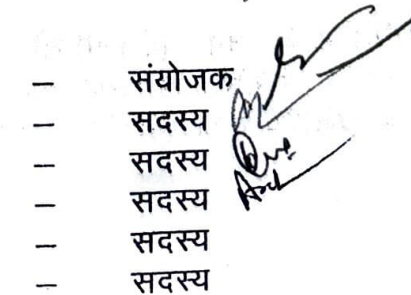 – संयोजक
– सदस्य
– सदस्य
– सदस्य
– सदस्य
– सदस्य